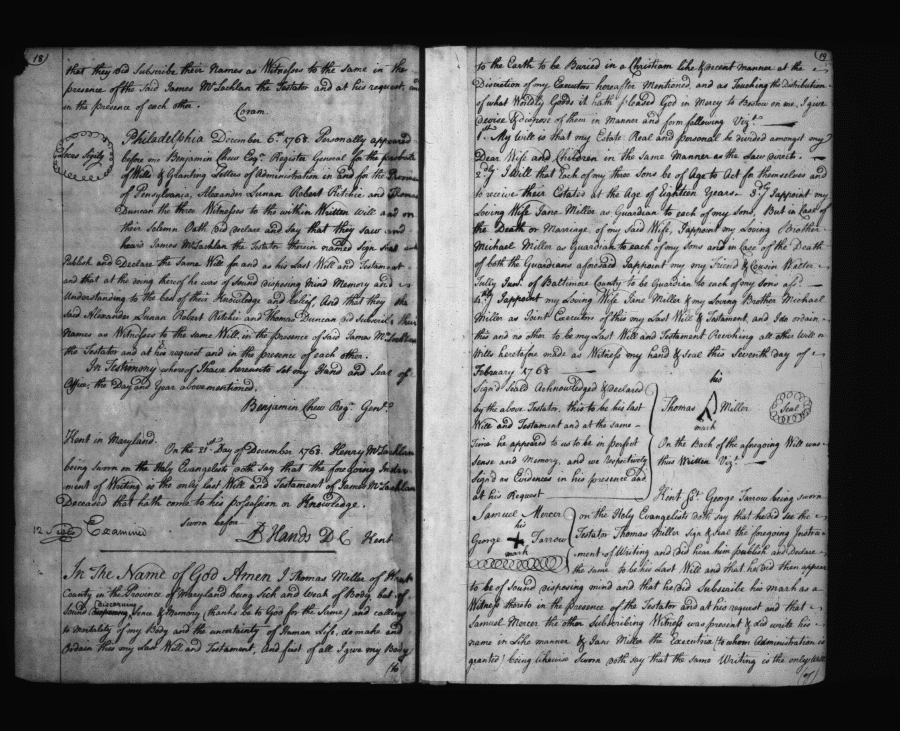 18)
that they did Subscribe their Names as Witnesses to the same in the
presence of the Said James McLachlan the Testator and at his request, and
in the presence of each other.
Coram.
Philadelphia December 6th. 1768. Personally appeared
Locus Sigily
before me Benjamin Chew Esqr. Register General for the probate
of Wills & Granting Letters of Administration in and for the Province
of Pensylvania, Alexander Lunan Robert Ritchie and Thomas
Duncan the three Witnesses to the within Written Will and on
their Solemn Oath did declare and Say that they saw and
heard James McLachlan the Testator therein named Sign Seal
Publish and Declare the Same Will for and as his Last Will and Testament
and that at the doing thereof he was of Sound disposing Mind Memory and
Understanding to the best of their Knowledge and belief, And that they the
said Alexander Lunan Robert Ritchie and Thomas Duncan did Subscribe their
Names as Witnesses to the same Will, in the presence of Said James McLachlan
the Testator and at his request and in the presence of each other.
In Testimony whereof I have hereunto Set my Hand and Seal of
Office, the Day and Year abovementioned.
Benjamin Chew Regr. Genl.
Kent in Maryland.
On the 21st. Day of December 1768. Henry McLachlan
being sworn on the Holy Evangelists doth Say that the foregoing Instru-
ment of Writing is the only last Will and Testament of James McLachlan
Deceased that hath come to his possession or Knowledge.
Sworn before
12 Sides Examined
D Hands D C Kent
In The Name of God Amen I Thomas Miller of Kent
County in the Province of Maryland being Sick and Weak of Body, but of
Sound disposing Sence & Memory (thanks be to God for the Same) and calling
to mortality of my Body and the uncertainty of Human Life, do make and
Ordain this my Last Will and Testament, And first of all I give my Body
(to
19
to the Earth to be Buried in a Christian like & decent manner at the
Discretion of my Executors hereafter Mentioned, and as Touching the distribution
of what Worldly Goods it hath pleased God in Mercy to Bestow on me, I give
devise & dispose of them in Manner and form following Vizt.
1st. My Will is that my Estate Real and personal be divided amongst my
Dear Wife and Children in the Same Manner as the Law directs.
2dly. I Will that Each of my three Sons be of Age to Act for themselves and
to receive their Estates at the Age of Eighteen Years. 3dly I appoint my
Loving Wife Jane Miller as Guardian to each of my Sons, But in Case of
the Death or Marriage of my Said Wife, I appoint my Loving Brother
Michael Miller as Guardian to each of my Sons and in Case of the Death
of both the Guardians aforesaid I appoint my my Friend & Cousin Walter
Tolly Junr. of Baltimore County to be Guardian to each of my Sons afsd.
4thly I appoint my Loving Wife Jane Miller & my Loving Brother Michael
Miller as Joint Executors of this my Last Will & Testament, and I do ordain
this and no other to be my Last Will and Testament Revokeing all other Will or
Wills heretofore made as Witness my hand & Seal this Seventh day of
February 1768
Sign'd Seal'd Acknowledged & declared
by the above Testator, this to be his last
Will and Testament and at the same
Time he appeared to us to be in perfect
Sense and Memory, and we respectively
Sign'd as Evidences in his presence and
at his Request
his
Thomas Miller
mark
Seal
On the Back of the aforegoing Will was
thus Written Vizt.
Samuel Mercer
his
George + Farrow
mark
Kent Sst. George Farrow being Sworn
on the Holy Evangelists doth say that he did see the
Testator Thomas Miller Sign & Seal the foregoing Instru-
ment of Writing and did hear him publish and Declare
the same to be his last Will and That he did then appear
to be of Sound disposing mind and that he did Subscribe his mark as a
Witness thereto in the presence of the Testator and at his request and that
Samuel Mercer the other Subscribing Witness was present & did write his
name in Like manner & Jane Miller the Executrix (to whom Administration is
granted) being likewise Sworn doth say that the same Writing is the only Will
(of)